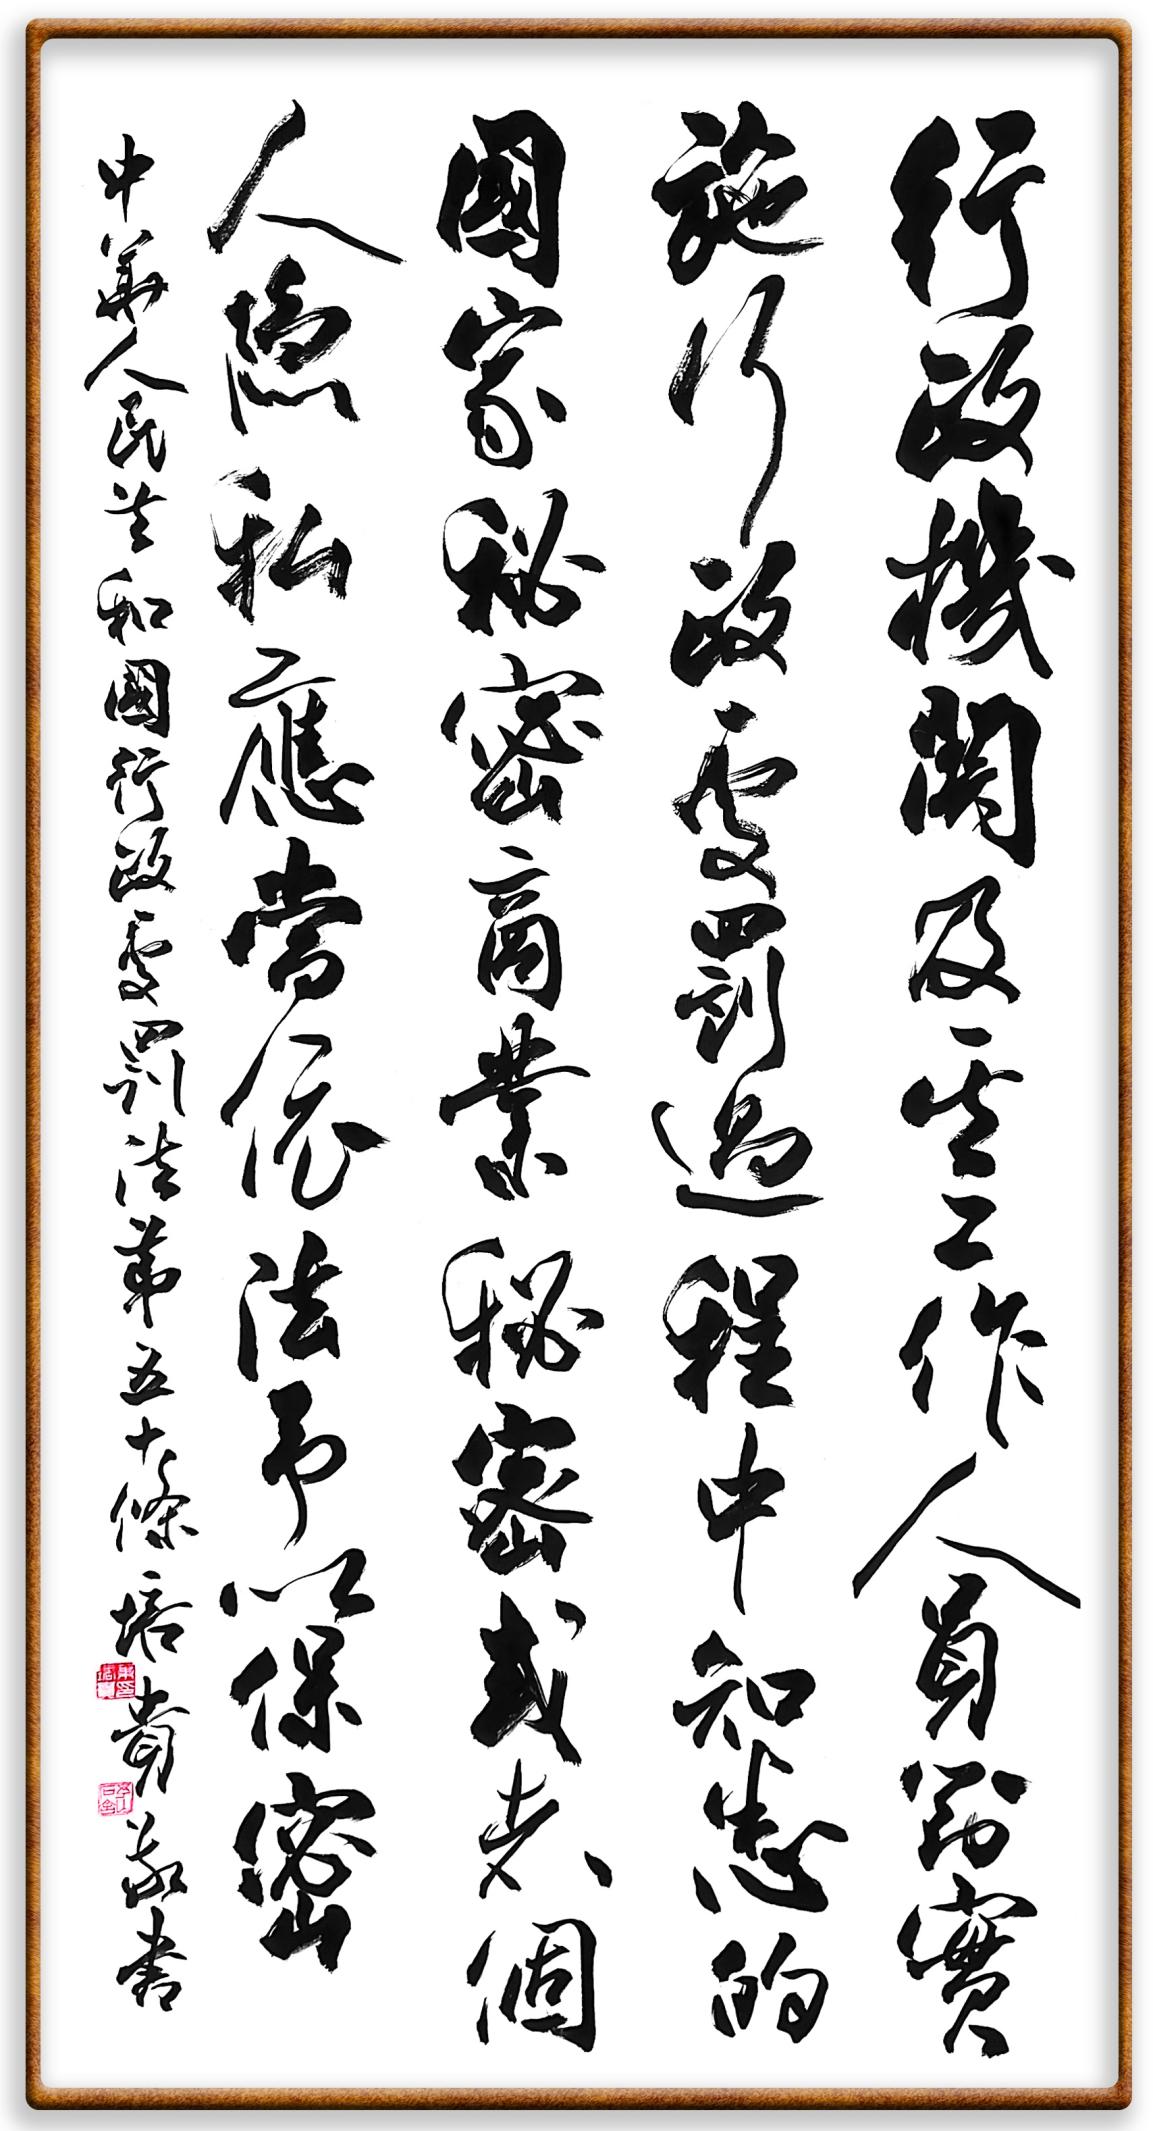 行政機関及其工作人員對實
施行政處罰過程中知悉的
國家秘密商業秘密或者個
人隱私應當依法予以保密
中華人民共和國行政處罰法第五十條 培貴敬書